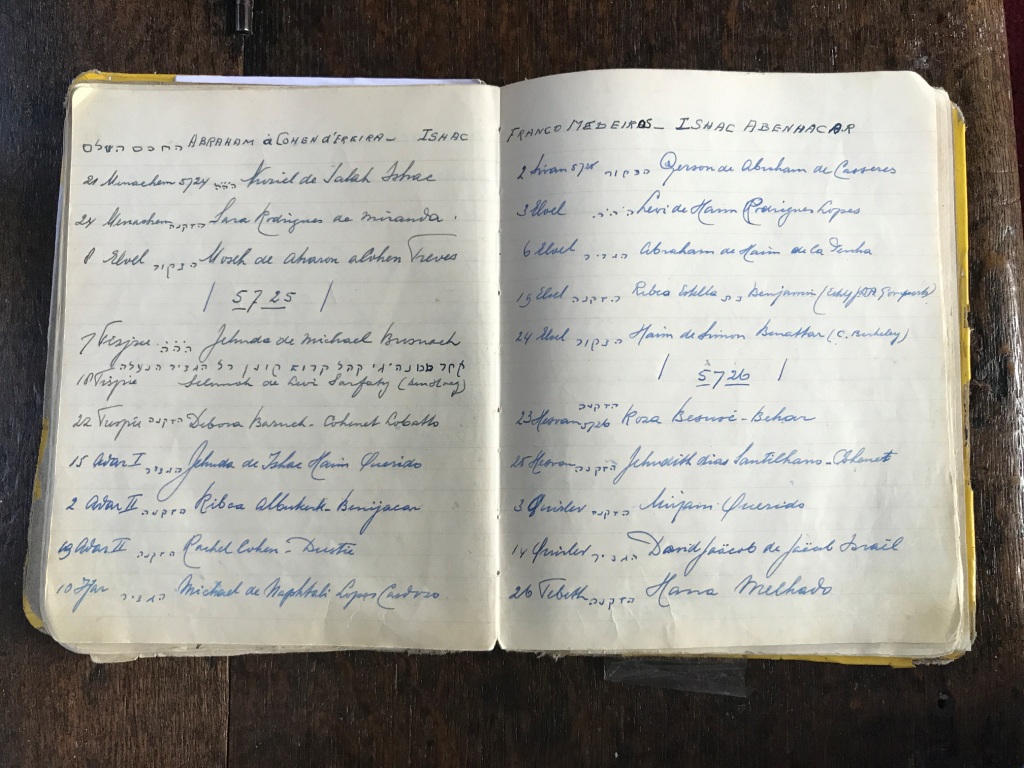 החכם השלם ABRAHAM á COHEN d'EREIRA - ISHAC
21 Menachem 5724 de Talah Ishac
24 Menachem הזקנה Sara Rodrigues de Miranda.
8 Elvel Mosch de Aharon aCohen Treves
| 5725 |
7 Tisjrie Jehuda de Michael Busnach
18 Tisjrie Selomoh de Levi Sarfaty (den Haag)
22 הזקנה Debora Baruch - Cohenet Lobatto
15 Adar I הגביר Jehuda de Ishac Haim Querido
2 Adar II הזקנה Ribca Albukerk - Benijacar
19 Adar II הזקנה Rachel Cohen - Dustie
10 Ijar הגביר Michael de Naphtali Lopes Cardozo
FRANCO MEDEIROS - ISHAC ABENHACAR
2 Sivan 5725 Gerson de Abraham de Casseres
3 Elvel Levi de Haim Rodrigues Lopes
6 Elvel הגביר Abraham de Haim de la Penha
19 Elvel הזקנה Ribca Estella בת Benjamin
24 Elvel Haim de Simon Benattar (C. Berkeley)
| 5726 |
23 Hesvan 5726 הזקנה Roza Besuvé - Behar
25 Hesvan הזקנה Jehudith dias Santilhano - Cohenet
3 Quislev הזקנה Mirjam Querido
14 Quislev הגביר David Jaäcob de Jaäcob Israël
26 Tebeth הזקנה Hana Melhado